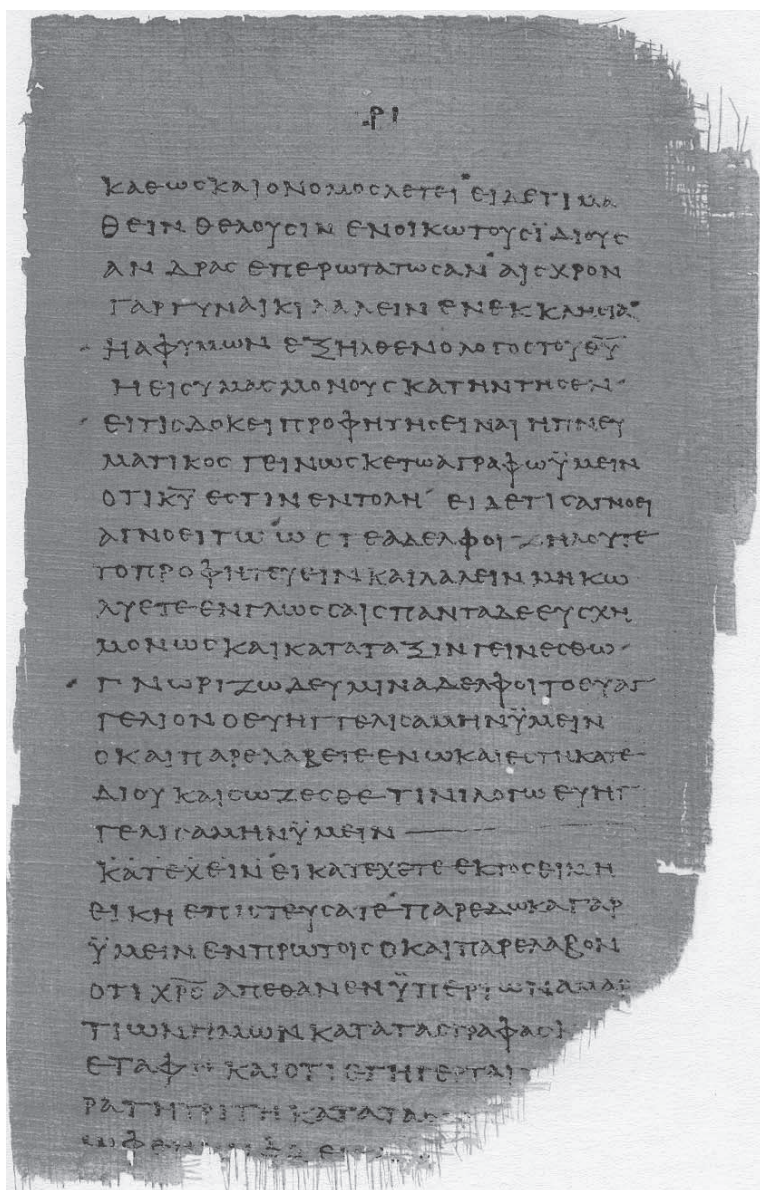 ΡΙ
ΚΑΘΩϹΚΑΙΟΝΟΜΟϹΛΕΓΕΙ ΕΙΔΕΤΙΜΑ
ΘΕΙΝΘΕΛΟΥϹΙΝΕΝΟΙΚΩΤΟΥϹΪΔΙΟΥϹ
ΑΝΔΡΑϹΕΠΕΡΩΤΑΤΩϹΑΝ ΑΙϹΧΡΟΝ
ΓΑΡΓΥΝΑΙΚΙΛΑΛΕΙΝΕΝΕΚΚΛΗϹΙΑ
ΗΑΦΥΜΩΝΕΞΗΛΘΕΝΟΛΟΓΟϹΤΟΥΘ̅Υ̅
ΗΕΙϹΥΜΑϹΜΟΝΟΥϹΚΑΤΗΝΤΗϹΕΝ
ΕΙΤΙϹΔΟΚΕΙΠΡΟΦΗΤΗϹΕΙΝΑΙΗΠΝΕΥ
ΜΑΤΙΚΟϹΓΕΙΝΩϹΚΕΤΩΑΓΡΑΦΩΫΜΕΙΝ
ΟΤΙΚ̅Υ̅ΕϹΤΙΝΕΝΤΟΛΗ ΕΙΔΕΤΙϹΑΓΝΟΕΙ
ΑΓΝΟΕΙΤΩ ΩϹΤΕΑΔΕΛΦΟΙΖΗΛΟΥΤΕ
ΤΟΠΡΟΦΗΤΕΥΕΙΝΚΑΙΛΑΛΕΙΝΜΗΚΩ
ΛΥΕΤΕΕΝΓΛΩϹϹΑΙϹΠΑΝΤΑΔΕΕΥϹΧΗ
ΜΟΝΩϹΚΑΙΚΑΤΑΤΑΞΙΝΓΕΙΝΕϹΘΩ
ΓΝΩΡΙΖΩΔΕΥΜΙΝΑΔΕΛΦΟΙΤΟΕΥΑΓ
ΓΕΛΙΟΝΟΕΥΗΓΓΕΛΙϹΑΜΗΝΫΜΕΙΝ
ΟΚΑΙΠΑΡΕΛΑΒΕΤΕΕΝΩΚΑΙΕϹΤΗΚΑΤΕ
ΔΙΟΥΚΑΙϹΩΖΕϹΘΕΤΙΝΙΛΟΓΩΕΥΗΓ
ΓΕΛΙϹΑΜΗΝΫΜΕΙΝ
ΚΑΤΕΧΕΙΝΕΙΚΑΤΕΧΕΤΕΕΚΤΟϹΕΙΜΗ
ΕΙΚΗΕΠΙϹΤΕΥϹΑΤΕ ΠΑΡΕΔΩΚΑΓΑΡ
ΫΜΕΙΝΕΝΠΡΩΤΟΙϹΟΚΑΙΠΑΡΕΛΑΒΟΝ
ΟΤΙΧ̅Ρ̅Ϲ̅ΑΠΕΘΑΝΕΝΫΠΕΡΤΩΝΑΜΑΡ
ΤΙΩΝΗΜΩΝΚΑΤΑΤΑϹΓΡΑΦΑϹ
ΕΤΑΦΗΚΑΙΟΤΙΕΓΗΓΕΡΤΑΙ
ΡΑΤΗΤΡΙΤΗΚΑΤΑΤΑϹ